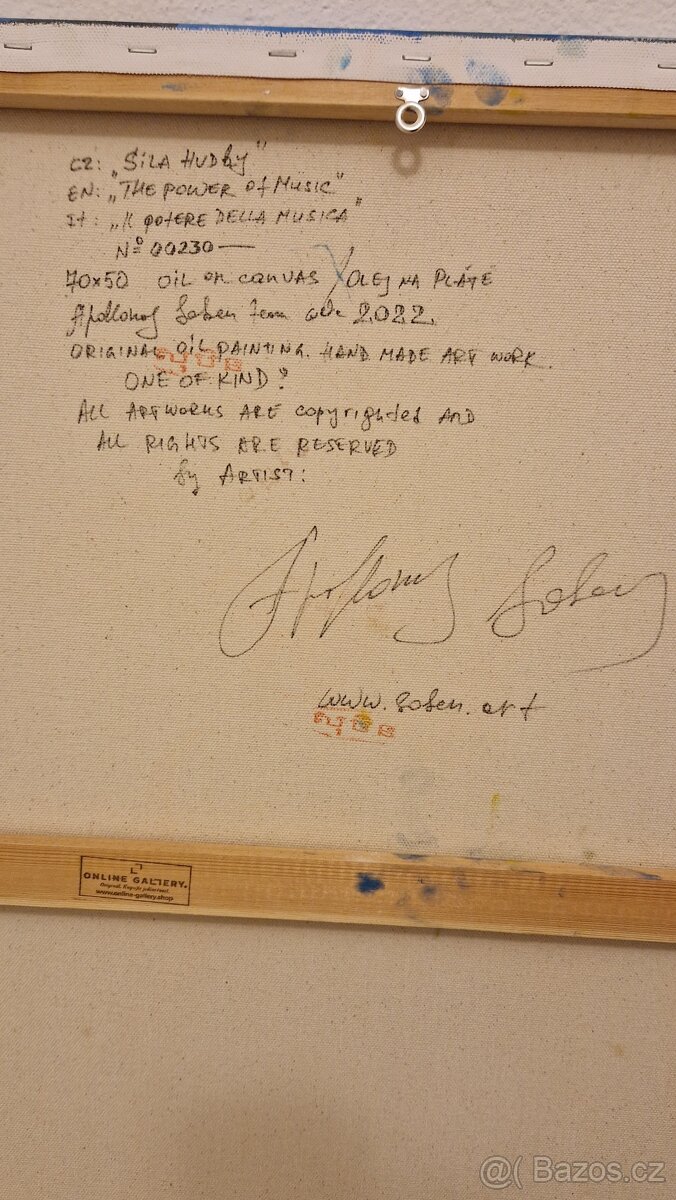 CZ: „SÍLA HUDBY"
EN: „THE POWER of MUSIC"
It: „IL POTERE DELLA MUSICA"
Nº 00230 —
70x50 OIL on CANVAS / OLEJ NA PLÁTĚ
Apollonis Soben 2022
ORIGINAL OIL PAINTING. HAND MADE ART WORK.
ONE OF KIND?
ALL ARTWORKS ARE copyrighted AND
ALL RIGHTS ARE RESERVED
by ARTIST:
Soben
www.soben.art
ONLINE GALLERY.
Originál. Kup si jedinečnost.
www.online-gallery.shop
@( Bazoš.cz